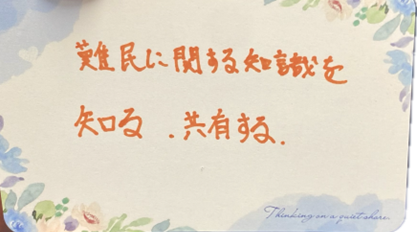 難民に関する知識を
知る ．共有する．
Thinking on a quiet shore.